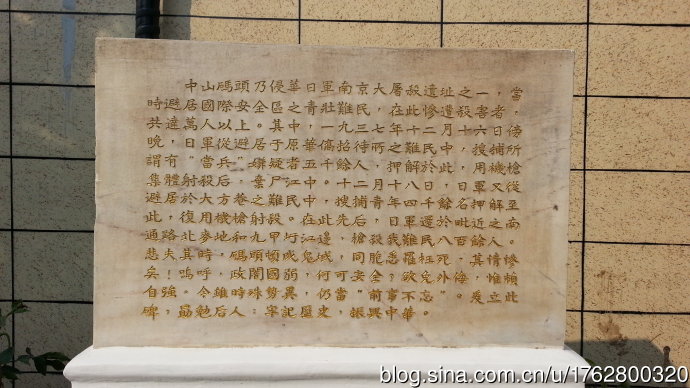 中山碼頭乃侵華日軍南京大屠殺遺址之一，當
時避居國際安全區之青壯難民，在此慘遭殺害者，
共達萬人以上。其中，一九三七年十二月十六日傍
晚，日軍從避居于原華僑招待所之難民中，搜捕所
謂有"當兵"嫌疑者五千餘人，押解於此，用機槍
集體射殺后，棄尸江中。十二月十八日，日軍又從
避居於大方巷之難民中，搜捕青年四千餘名，押解至
此，復用機槍射殺。在此先後，日軍還於附近之南
通路北麥地和九甲圩江邊，槍殺我難民八百餘人。
悲夫其時，碼頭頓成鬼域，同胞悉罹枉死，其情慘
矣！嗚呼，政闇國弱，何可安全？欲免外侮，惟頻
自強。今雖時殊勢異，仍當"前事不忘"。爰立此
碑，勗勉后人：牢記歷史，振興中華。
blog.sina.com.cn/u/1762800320